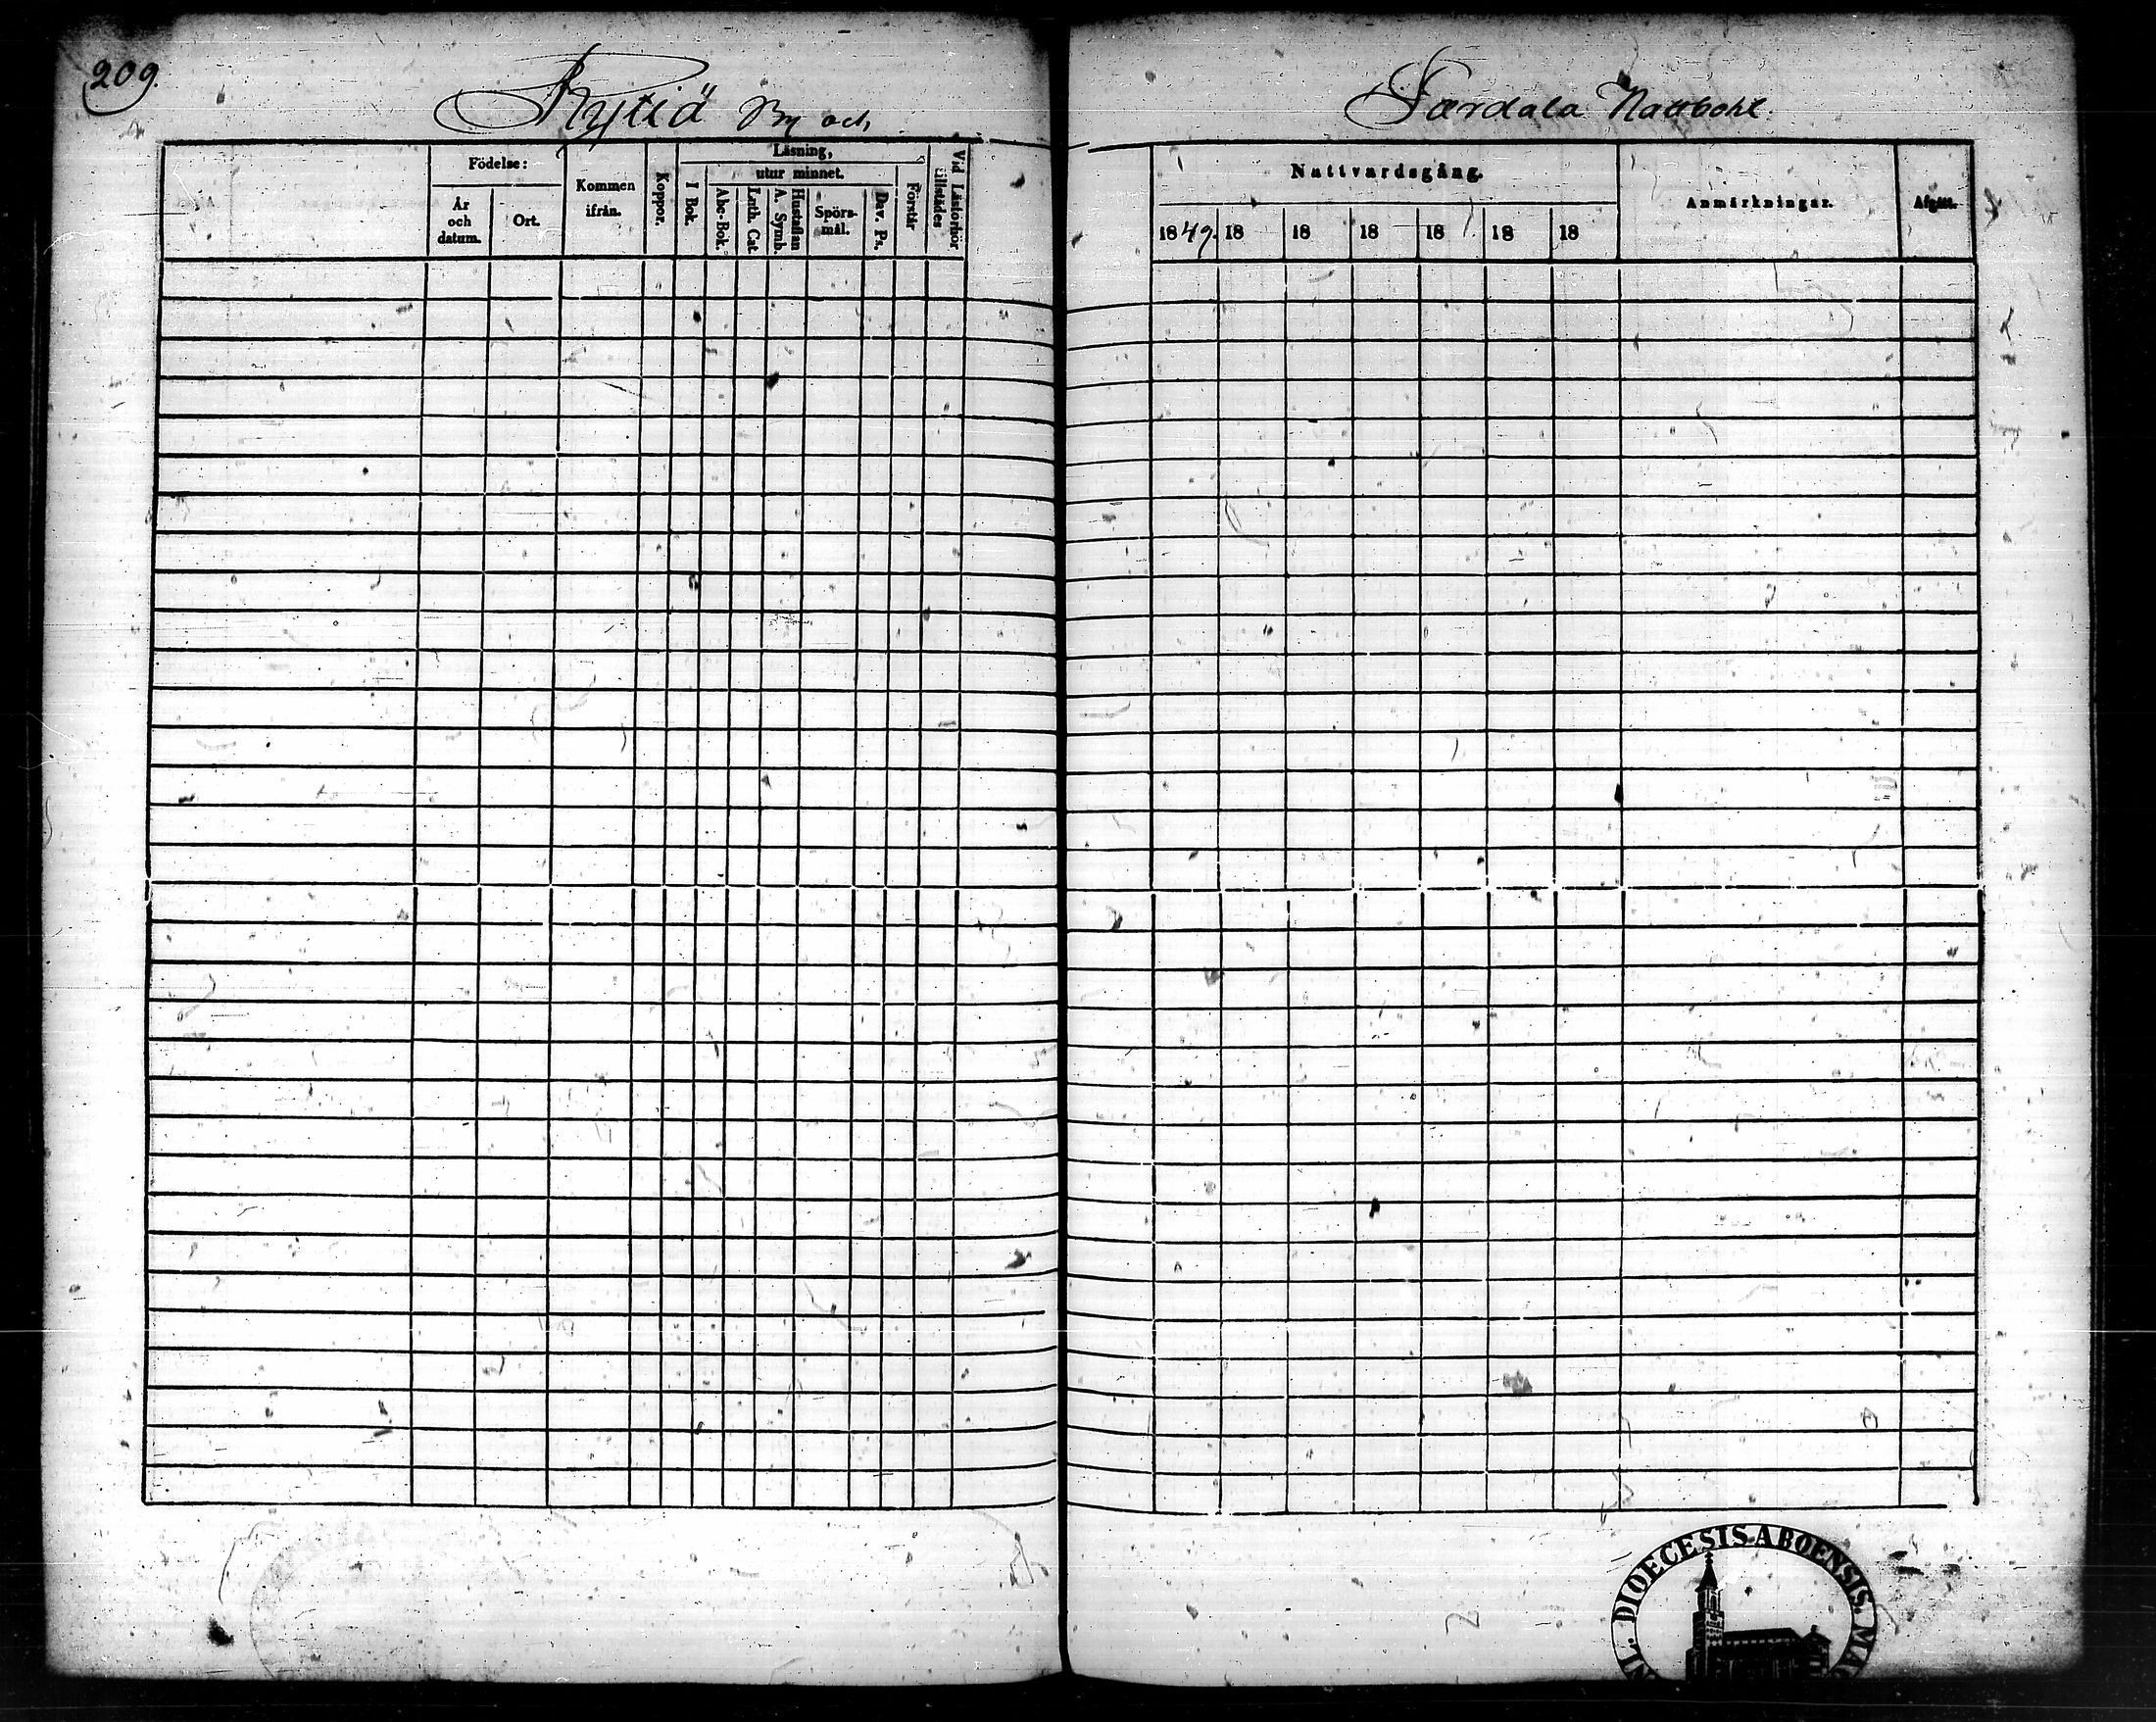 209.
Rytiä By och
Födelse:
År och datum.
Ort.
Kommen ifrån.
Koppor.
Läsning,
I Bok.
utur minnet.
Abc-Bok.
Luth. Cat.
Hustaflan A. Symb.
Spörsmål.
Dav. Ps.
Förstår
Vid Läsförhör tillstädes
Nattbohl.
Nattvardsgång.
1849. 18 18 18 18 18 18
Anmärkningar.
Afgått.
DIOECESIS ABOENSIS.